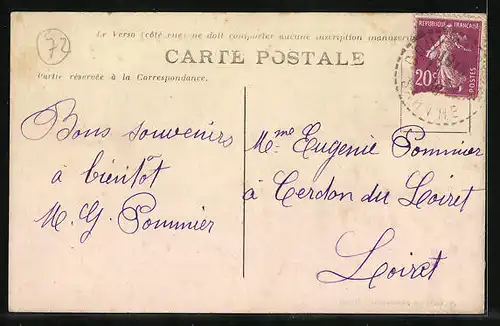 72
Le Verso (côté vue) ne doit comporter aucune inscription manuscrite
CARTE POSTALE
Partie réservée à la Correspondance.
REPUBLIQUE FRANÇAISE
20c
POSTES
Bons souvenirs
à bientôt
M. G. Pommier
Mme Eugenie Pommier
à Cerdon du Loiret
Loiret